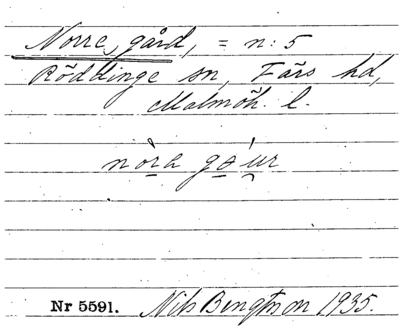 Norre, gård, = n: 5
Rödblinge sn, Färs hd,
Malmöh. l.
nò̱ra ga̱u̯r
Nr 5591. Nils Bengtson 1935.